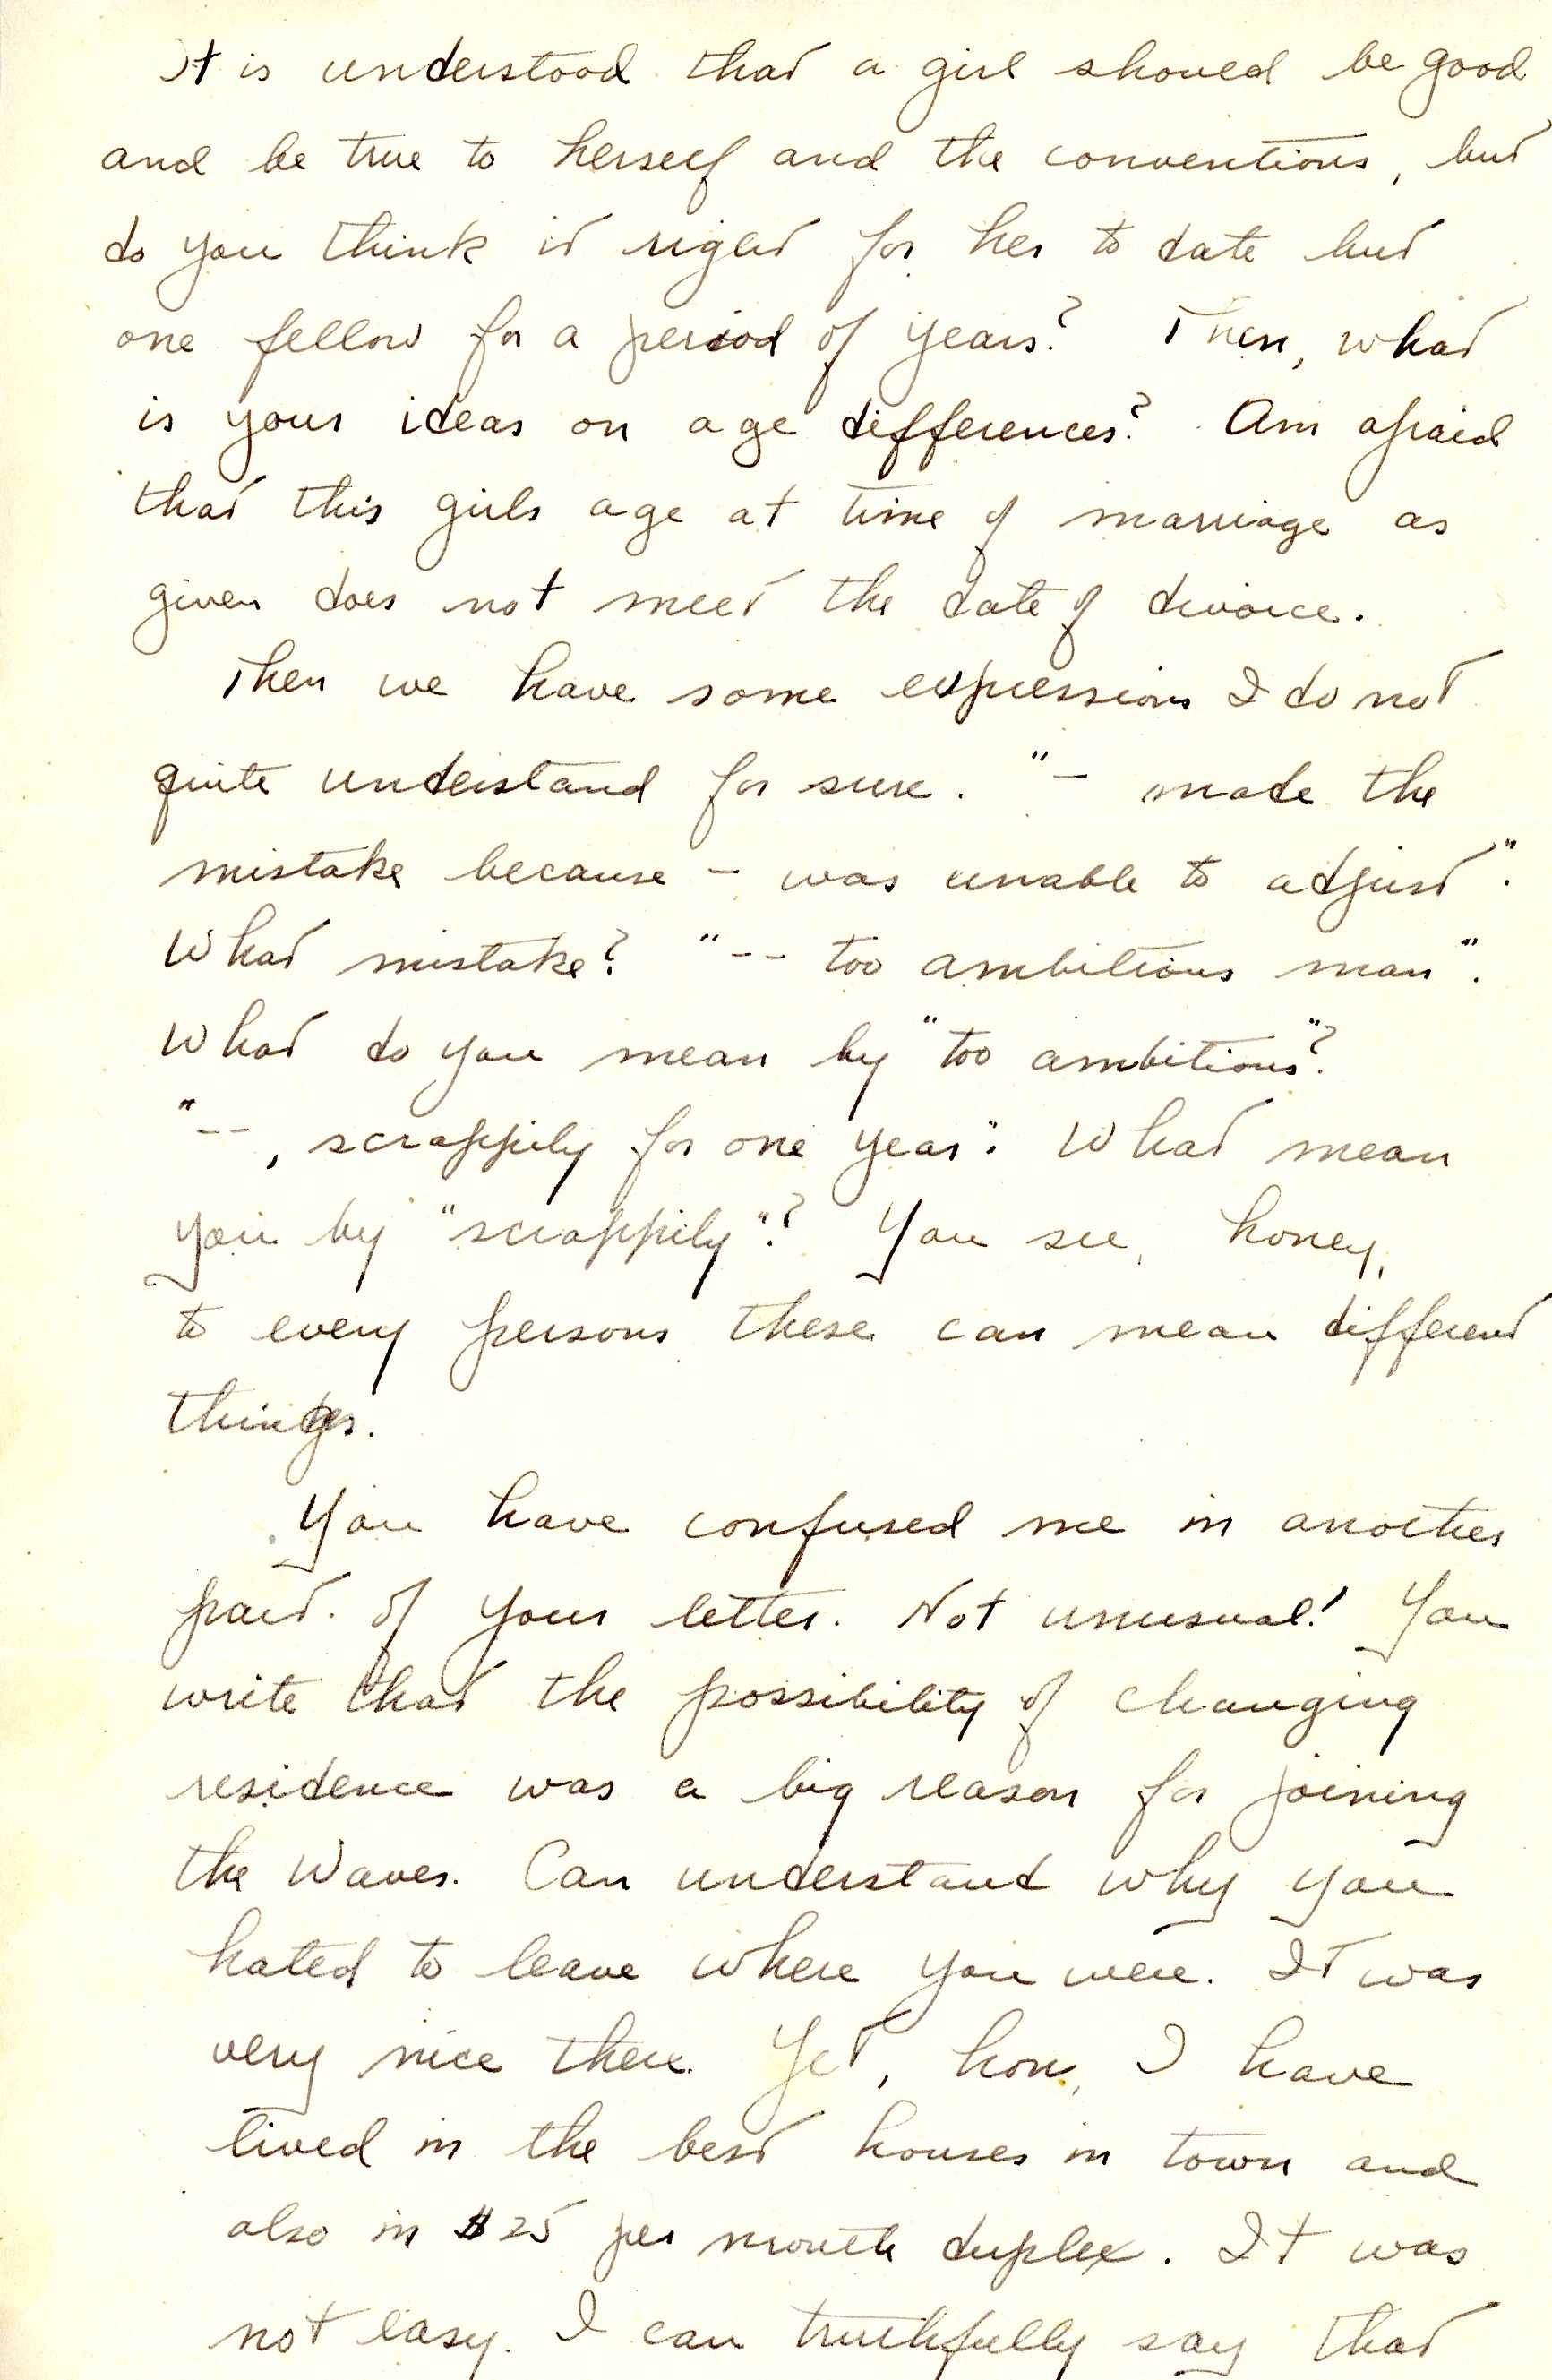 It is understood that a girl should be good
and be true to herself and the conventions, but
do you think it right for her to date but
one fellow for a period of years? Then, what
is your ideas on age differences? Am afraid
that this girls age at time of marriage as
given does not meet the date of divorce.
Then we have some expressions I do not
quite understand for sure. "– made the
mistake because – was unable to adjust".
What mistake? "-- too ambitious man".
What do you mean by "too ambitious"?
"--, scrappily for one year". What mean
you by "scrappily"? You see, honey,
to every persons these can mean different
things.
You have confused me in another
part of your letter. Not unusual! You
write that the possibility of changing
residence was a big reason for joining
the Waves. Can understand why you
hated to leave where you were. It was
very nice there. Yet, hon, I have
lived in the best houses in town and
also in $25 per month duplex. It was
not easy. I can truthfully say that